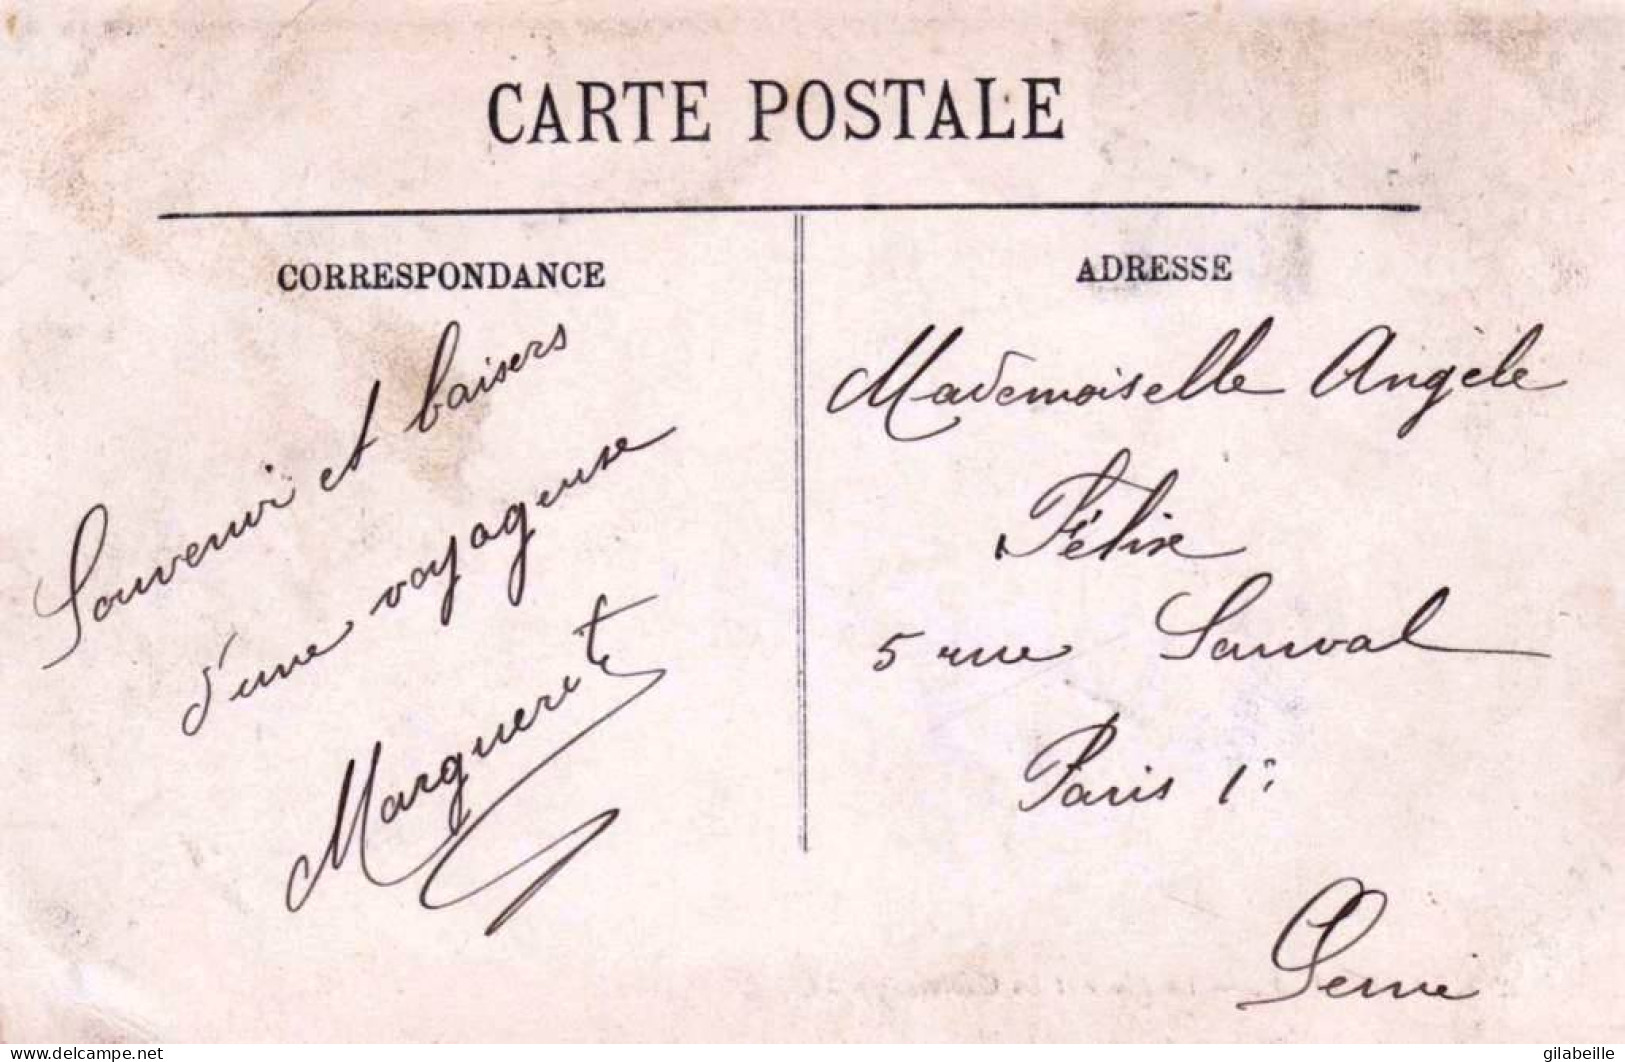 CARTE POSTALE
CORRESPONDANCE
Souvenir et baisers
d'une voyageuse
Marguerite
ADRESSE
Mademoiselle Angèle
Félix
5 rue Sauval
Paris 1:
Seine
www.delcampe.net
gilabeille